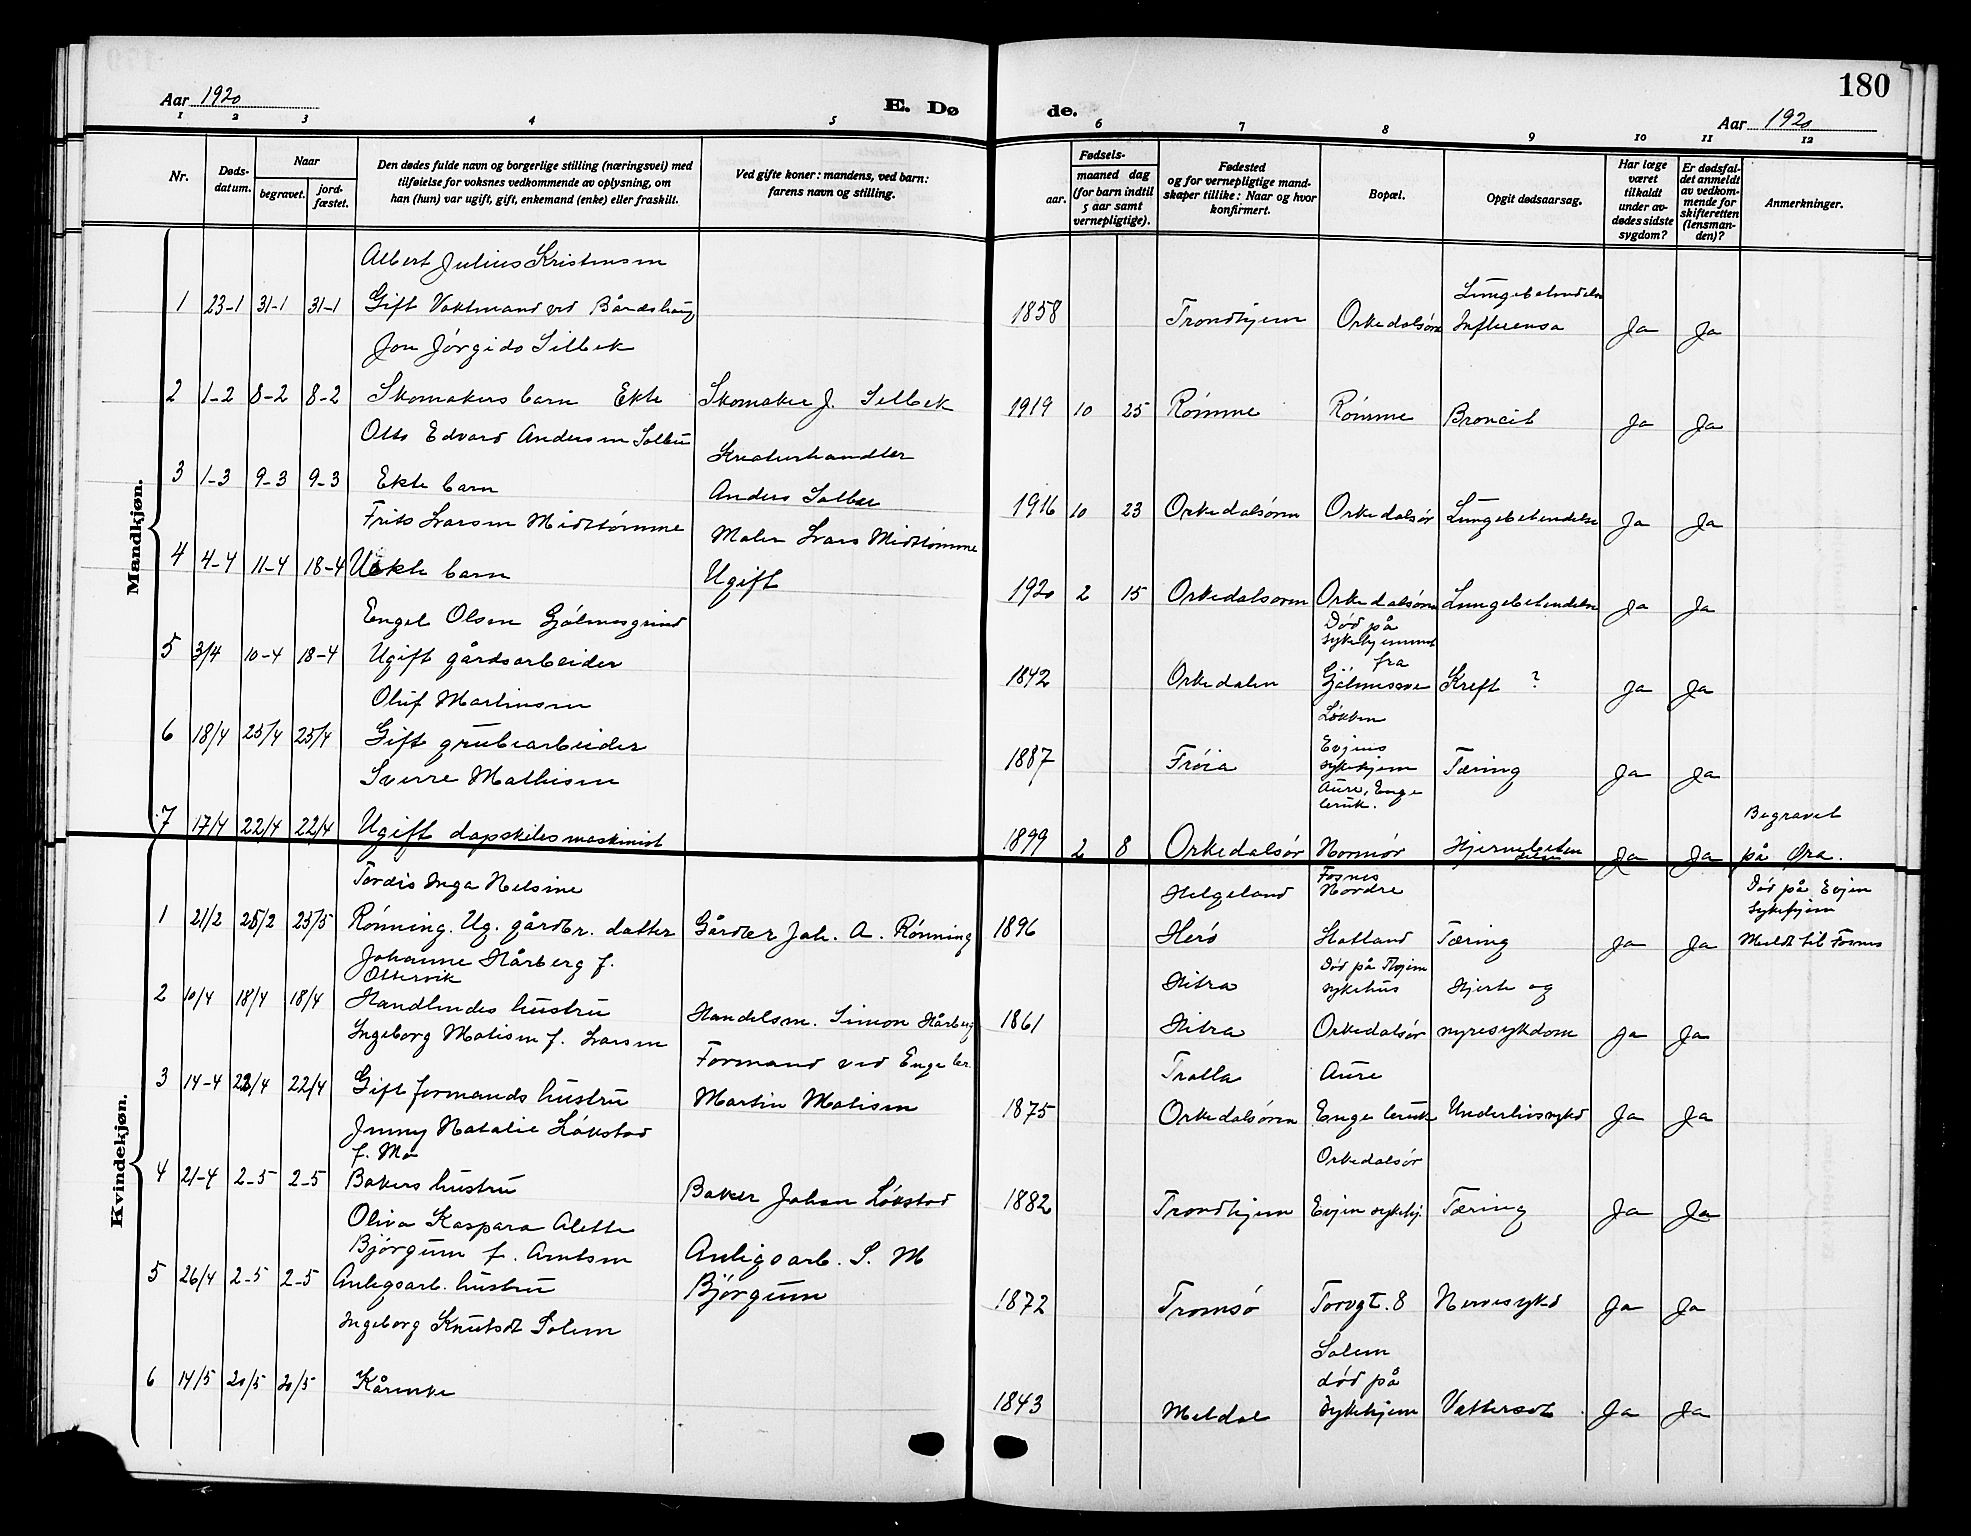 180
Aar 1920
E. Dø de.
Aar 1920
1 2 3 4 5 6 7 8 9 10 11 12
Nr.
Døds-
datum.
Naar
begravet.
jord-
fæstet.
Den dødes fulde navn og borgerlige stilling (næringsvei) med
tilføielse for voksnes vedkommende av oplysning, om
han (hun) var ugift, gift, enkemand (enke) eller fraskilt.
Ved gifte koner: mandens, ved barn:
farens navn og stilling.
Fødsels-
aar.
maaned dag
(for barn indtil
5 aar samt
vernepligtige).
Fødested
og for vernepligtige mand-
skaper tillike: Naar og hvor
konfirmert.
Bopæl.
Opgit dødsaarsag.
Har læge
været
tilkaldt
under av-
dødes sidste
sygdom?
Er dødsfal-
det anmeldt
av vedkom-
mende for
skifteretten
(lensman-
den)?
Anmerkninger.
Mandkjøn.
Albert Julius Kristensen
1 23-1 31-1 31-1 Gift Vaktmand ved Bårdshaug 1858 Trondhjem Orkedalsøren Lungebetendelse
Influensa Ja Ja
Jon Jørgido Silbek
2 1-2 8-2 8-2 Skomakers barn Ekte Skomaker J. Silbek 1919 10 25 Rømme Rømme Broncit Ja Ja
Otto Edvard Andersen Solbu
3 1-3 9-3 9-3 Ekte barn Kreaturhandler
Anders Solbu 1916 10 23 Orkedalsøren Orkedalsør Lungebetendelse Ja Ja
Frits Larsen Midttømme
4 4-4 11-4 18-4 Uekte barn Maler Lars Midttømme
Ugift 1920 2 15 Orkedalsøren Orkedalsøren Lungebetendelse Ja Ja
Engel Olsen Gjølmesgrind
5 3/4 10-4 18-4 Ugift gårdsarbeider 1842 Orkedalen Død på
sykehjemmet
fra
Gjølmesøre Kreft ? Ja Ja
Oluf Martinsen
6 18/4 25/4 25/4 Gift grubearbeider 1887 Frøia Løkken
Evjens
sykehjem Tæring Ja Ja
Sverre Mathisen
7 17/4 22/4 22/4 Ugift dapskibsmaskinist 1899 2 8 Orkedalsør Aure, Enge
bruk.
Normør Hjernebeten
delse Ja Ja Begravet
på Øra.
Kvindekjøn.
Tordis Inga Nelsine
1 21/2 25/2 25/5 Rønning. Ug. gårdbr. datter Gårdbr Joh. A. Rønning 1896 Helgeland
Herø Fosnes
Nordre
Statland Tæring Ja Ja Død på Evjen
sykehjem
Meldt til Fosnes
Johanne Hårberg f.
Ottervik
2 10/4 18/4 18/4 Handlendes hustru Handelsm. Simon Hårberg 1861 Hitra
Hitra Død på Thjem
sykehus
Orkedalsør Hjerte og
nyresykdom Ja Ja
Ingeborg Matisen f. Larsen
3 14-4 22/4 22/4 Gift formands hustru Formand ved Enge br.
Martin Matisen 1875 Trolla
Orkedalsøren Aure
Enge bruk Underlivssykd Ja Ja
Jenny Natalie Løkstad
f. Mo
4 21-4 2-5 2-5 Bakers hustru Baker Johan Løkstad 1882 Trondhjem Orkedalsør
Evjen sykehj. Tæring Ja Ja
Oliva Kaspara Alette
Bjørgum f. Arntsen
5 26/4 2-5 2-5 Anlegsarb. hustru Anligsarb. S. M
Bjørgum 1872 Tromsø Torvgt. 8 Nervesykd Ja Ja
Ingeborg Knutsdt Solem
6 14/5 20/5 20/5 Kårenke 1843 Meldal Solem
død på
sykehjem Vattersot Ja Ja